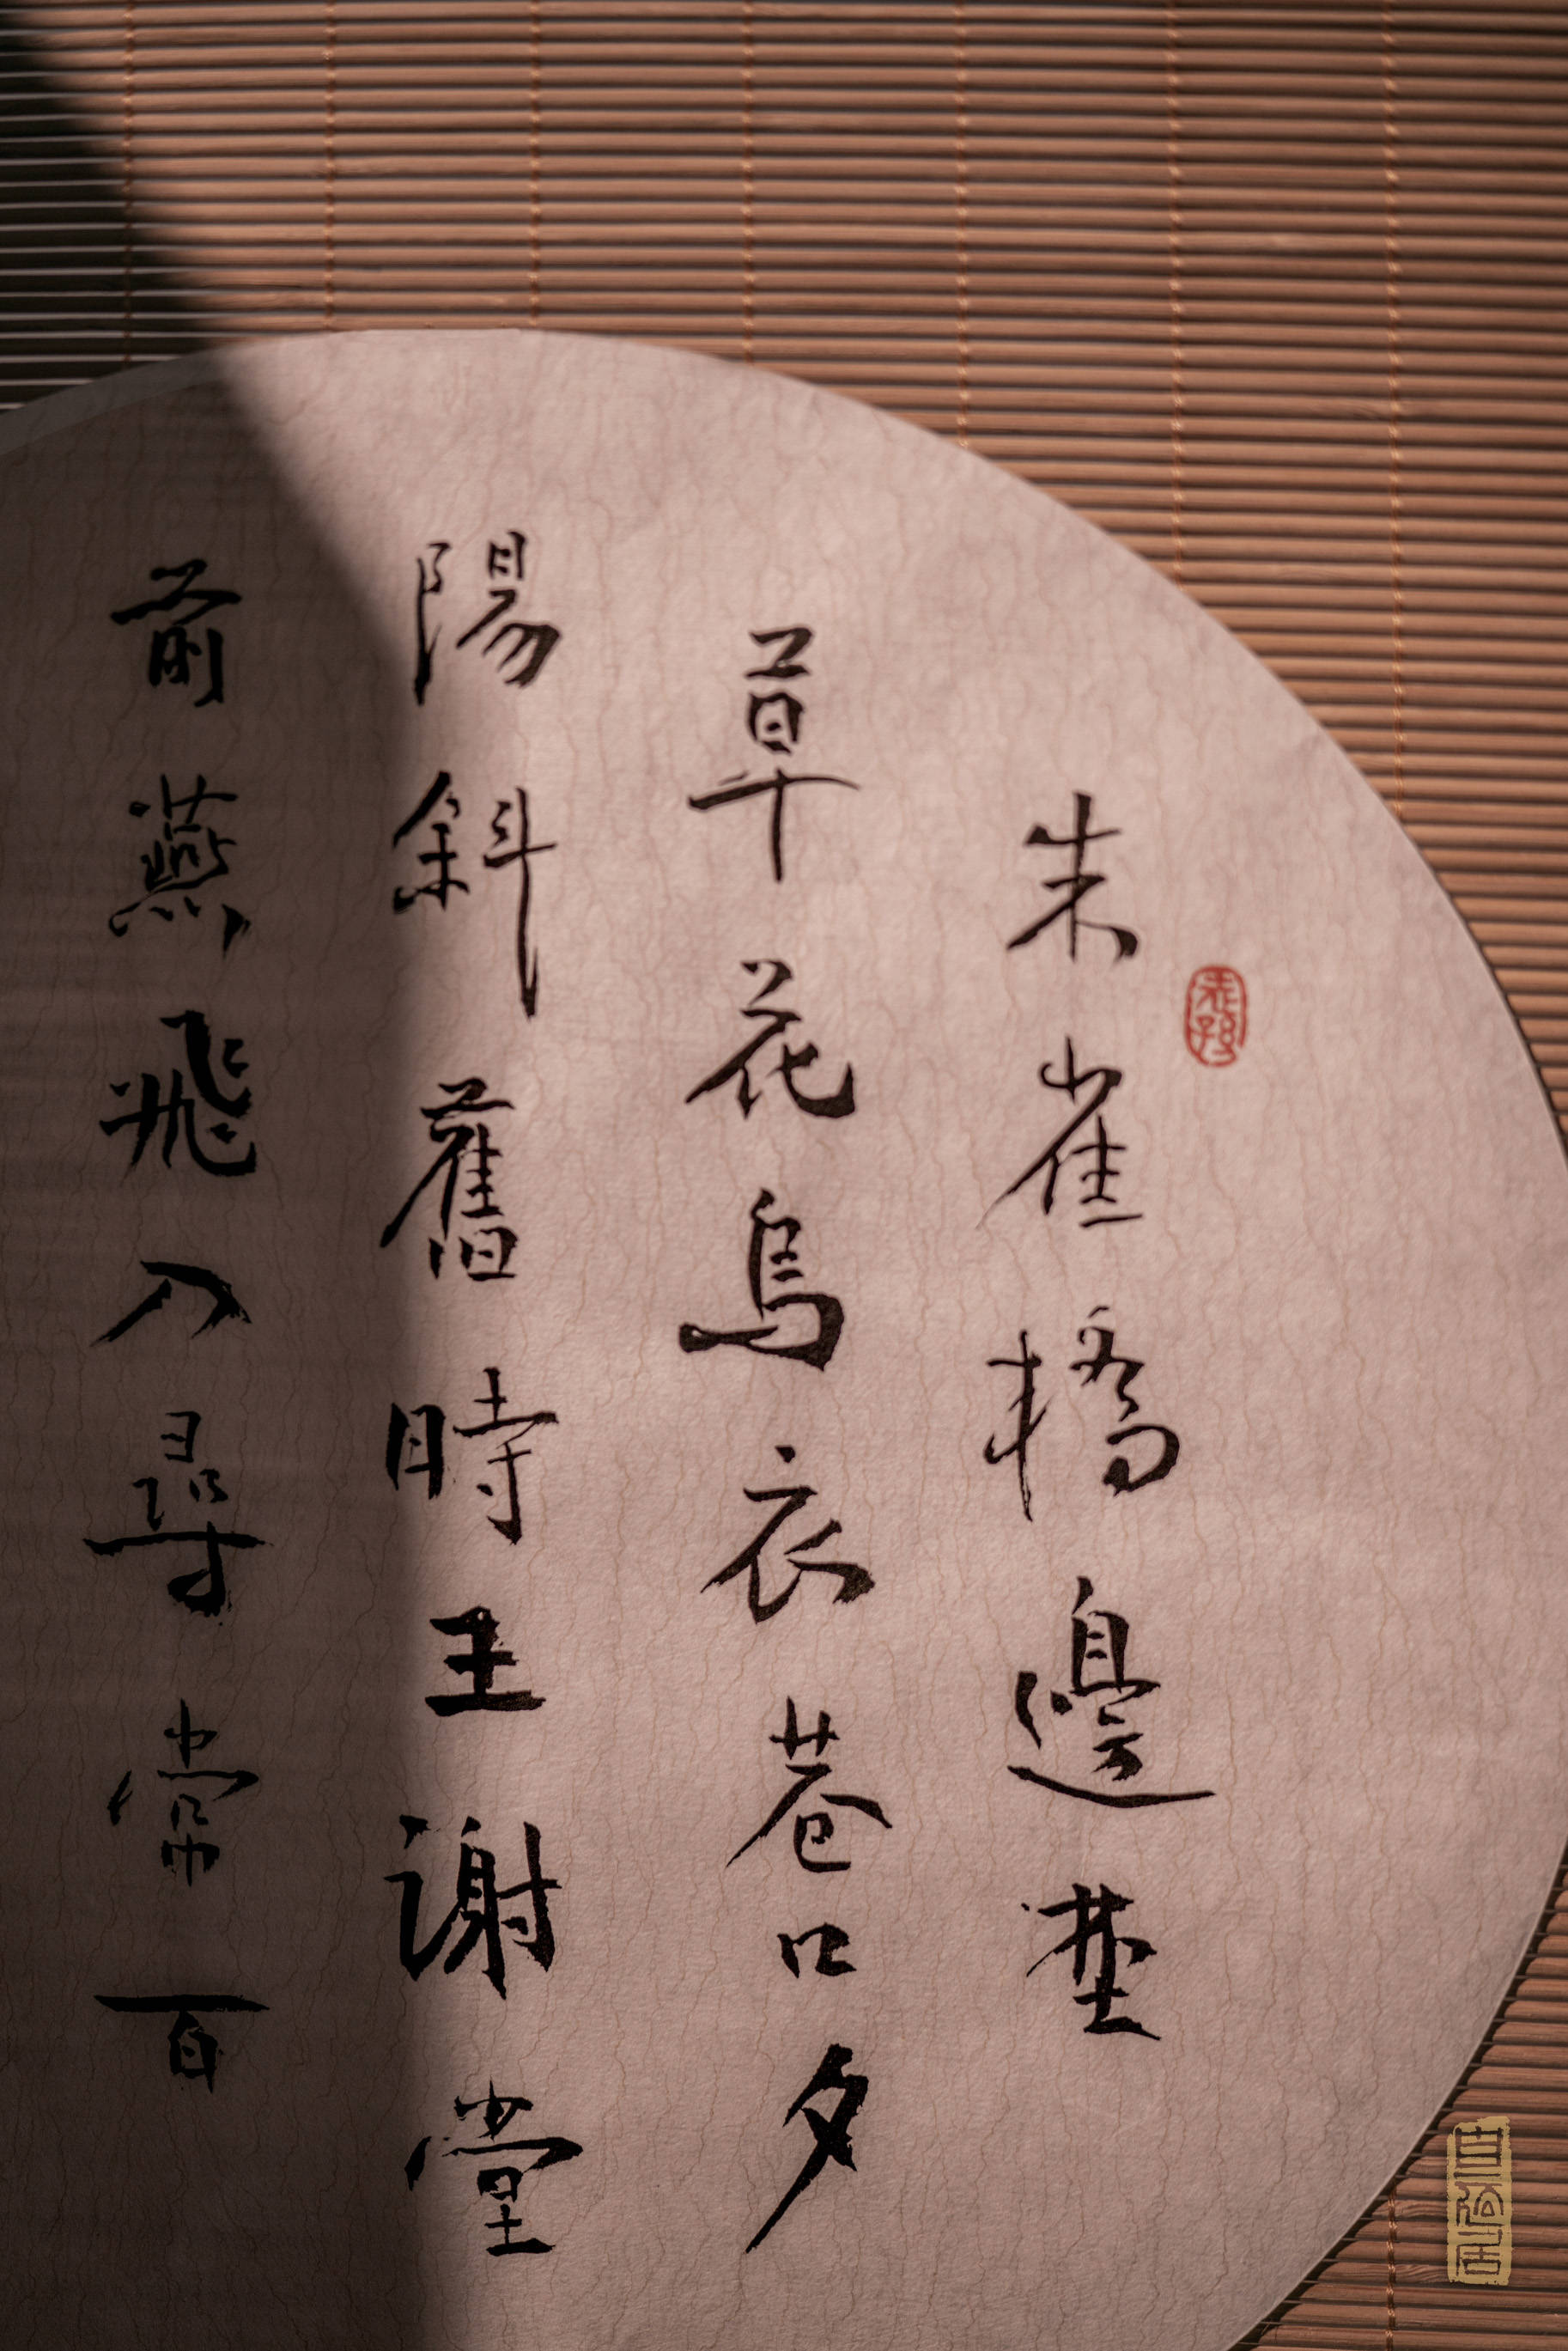 朱雀橋邊埜
草花烏衣巷口夕
陽斜舊時王謝堂
前燕飛入尋常百